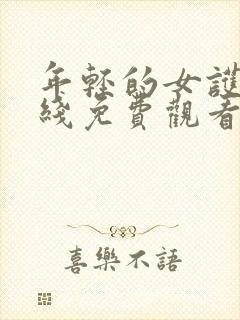 年轻的女護
綫免費觀看
喜樂不語